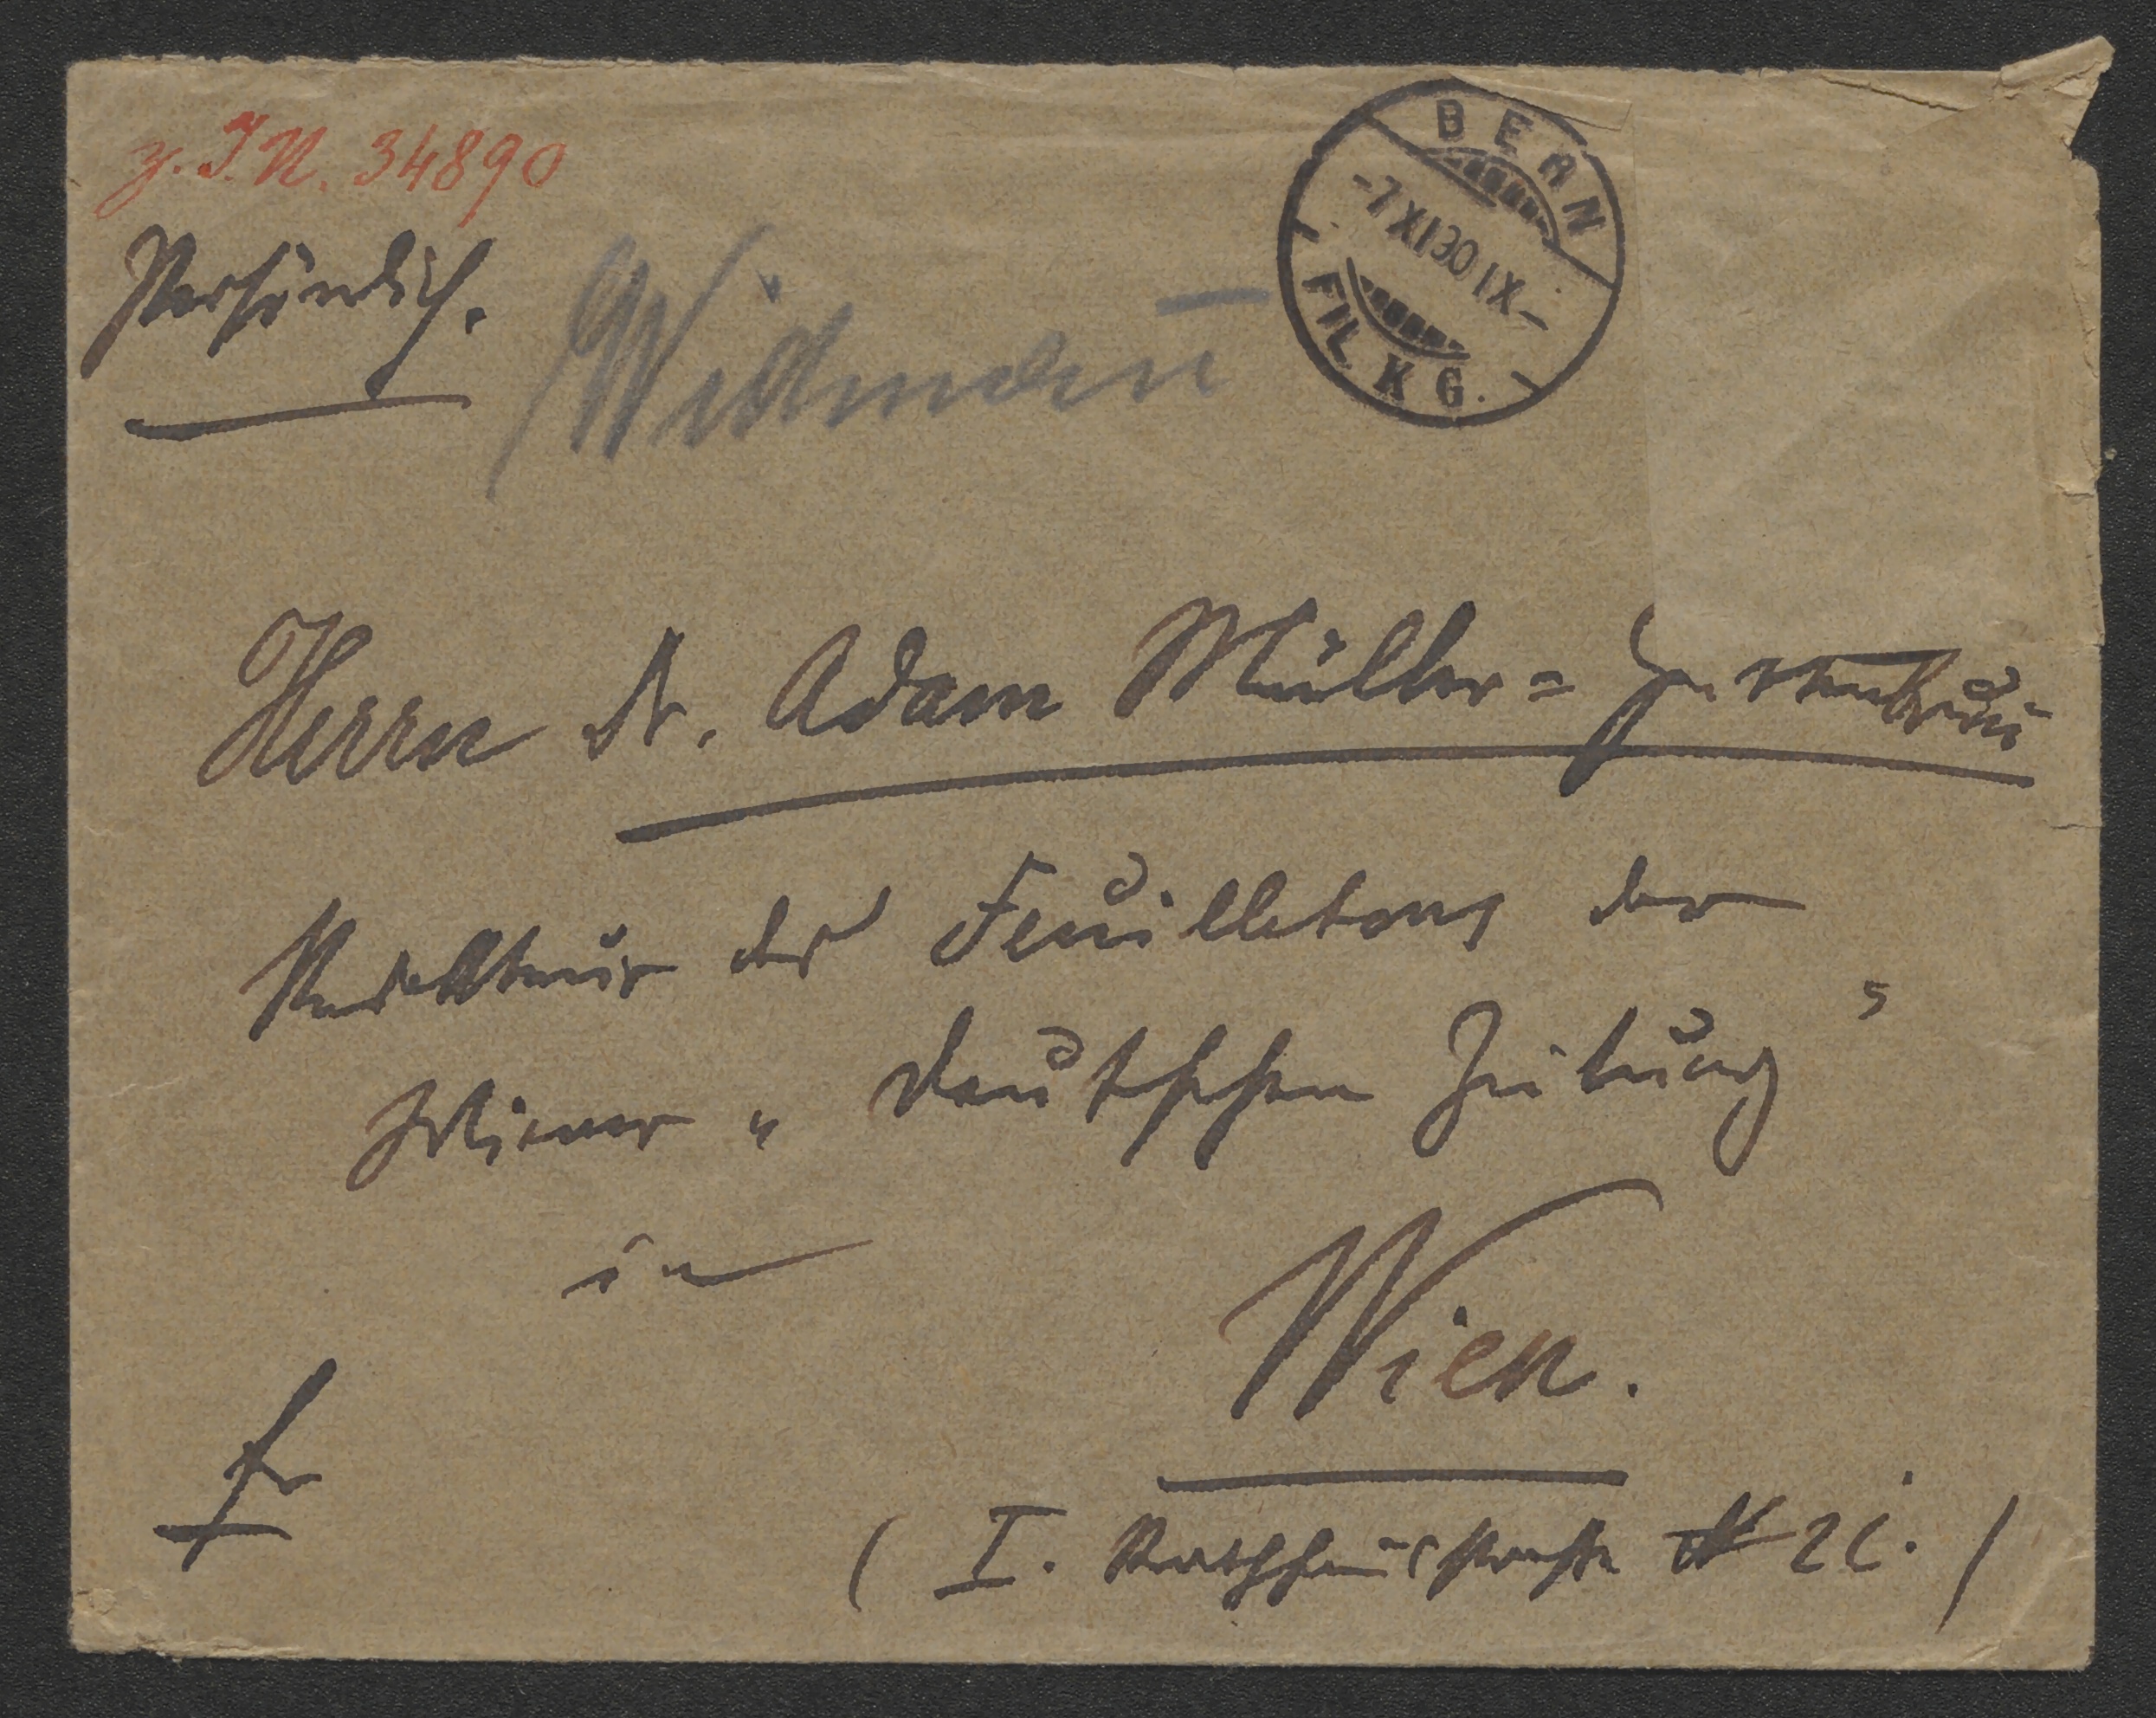 z. I.N. 34890
Persönlich.
Widmann
BERN
-7 XI 30 IX-
FIL. K G.
Herrn Dr. Adam Müller=Guttenbrunn
Redakteur des Feuilletons der
Wiener „Deutschen Zeitung"
in
Wien.
fr
( I. Rathhausstrasse